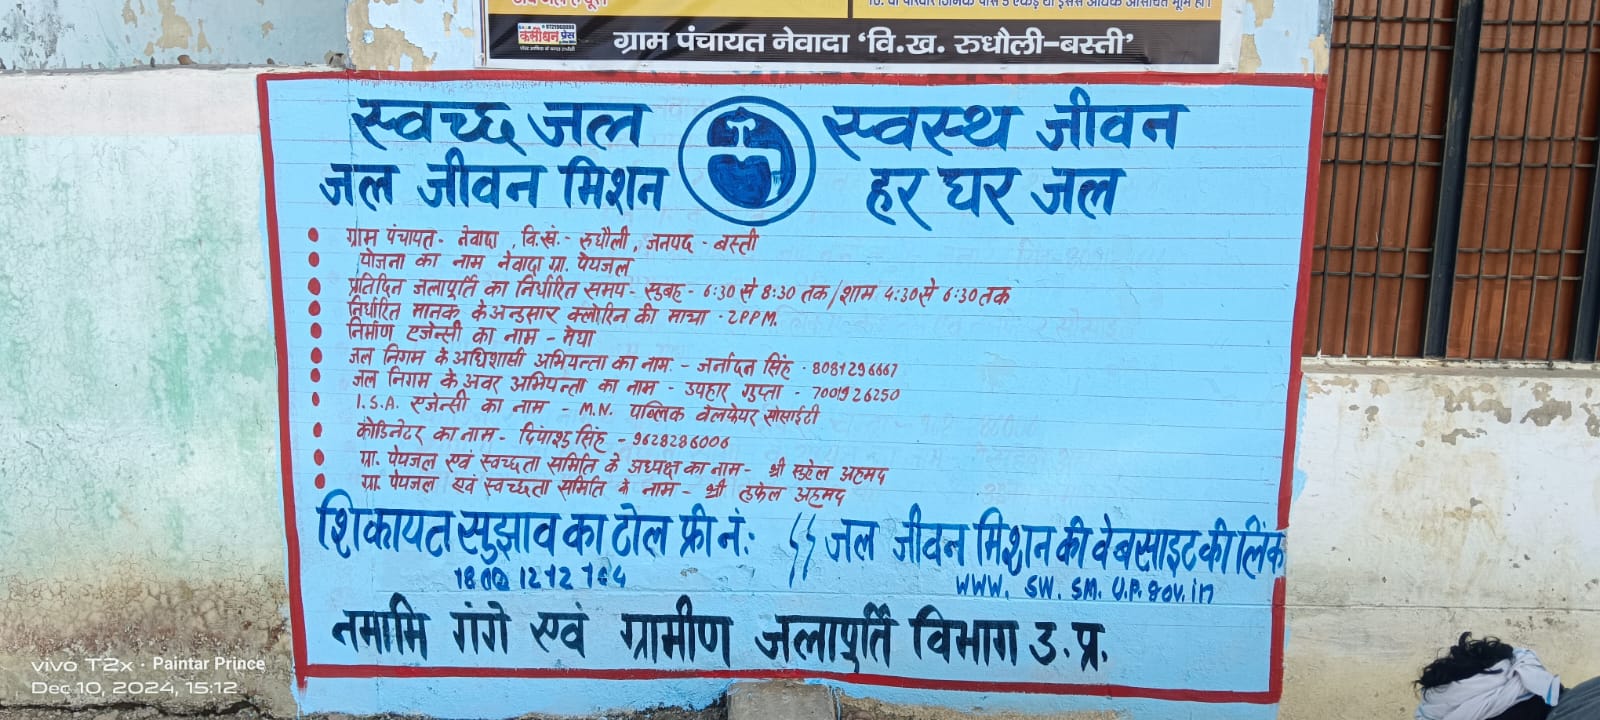 ग्राम पंचायत नेवादा ‘वि.ख. रुधौली–बस्ती’
स्वच्छ जल स्वस्थ जीवन
जल जीवन मिशन हर घर जल
ग्राम पंचायत- नेवादा, वि.खं.- रुधौली, जनपद - बस्ती
योजना का नाम नेवादा ग्रा. पेयजल
प्रतिदिन जलापूर्ति का निर्धारित समय- सुबह - 6:30 से 8:30 तक/शाम 4:30 से 6:30 तक
निर्धारित मानक के अनुसार क्लोरिन की मात्रा - 2PPM.
निर्माण एजेन्सी का नाम - मेघा
जल निगम के अधिशासी अभियन्ता का नाम - जर्नादन सिंह - 8081296667
जल निगम के अवर अभियन्ता का नाम - उपहार गुप्ता - 7001926250
I.S.A. एजेन्सी का नाम - M.N. पब्लिक वेलफेयर सोसाईटी
कोडिनेटर का नाम - सिंह - 9628286006
ग्रा. पेयजल एवं स्वच्छता समिति के अध्यक्ष का नाम - श्री अहमद
ग्रा. पेयजल एवं स्वच्छता समिति के नाम - श्री अहमद
शिकायत सुझाव का टोल फ्री नं.: जल जीवन मिशन की वेबसाइट की लिंक
1800 1212 164 WWW. SW. SM. U.P. gov.in
नमामि गंगे एवं ग्रामीण जलापूर्ति विभाग उ.प्र.
vivo T2x · Paintar Prince
Dec 10, 2024, 15:12